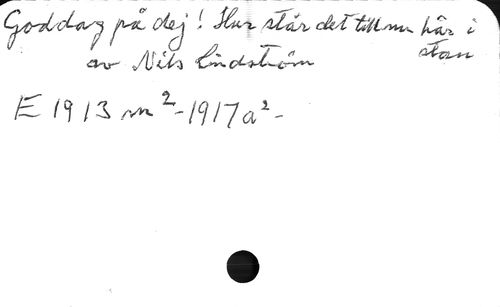 Goddag på dej! Hur står det till nu här i
stan
av Nils Lindström
E 1913 m²-1917 a²-